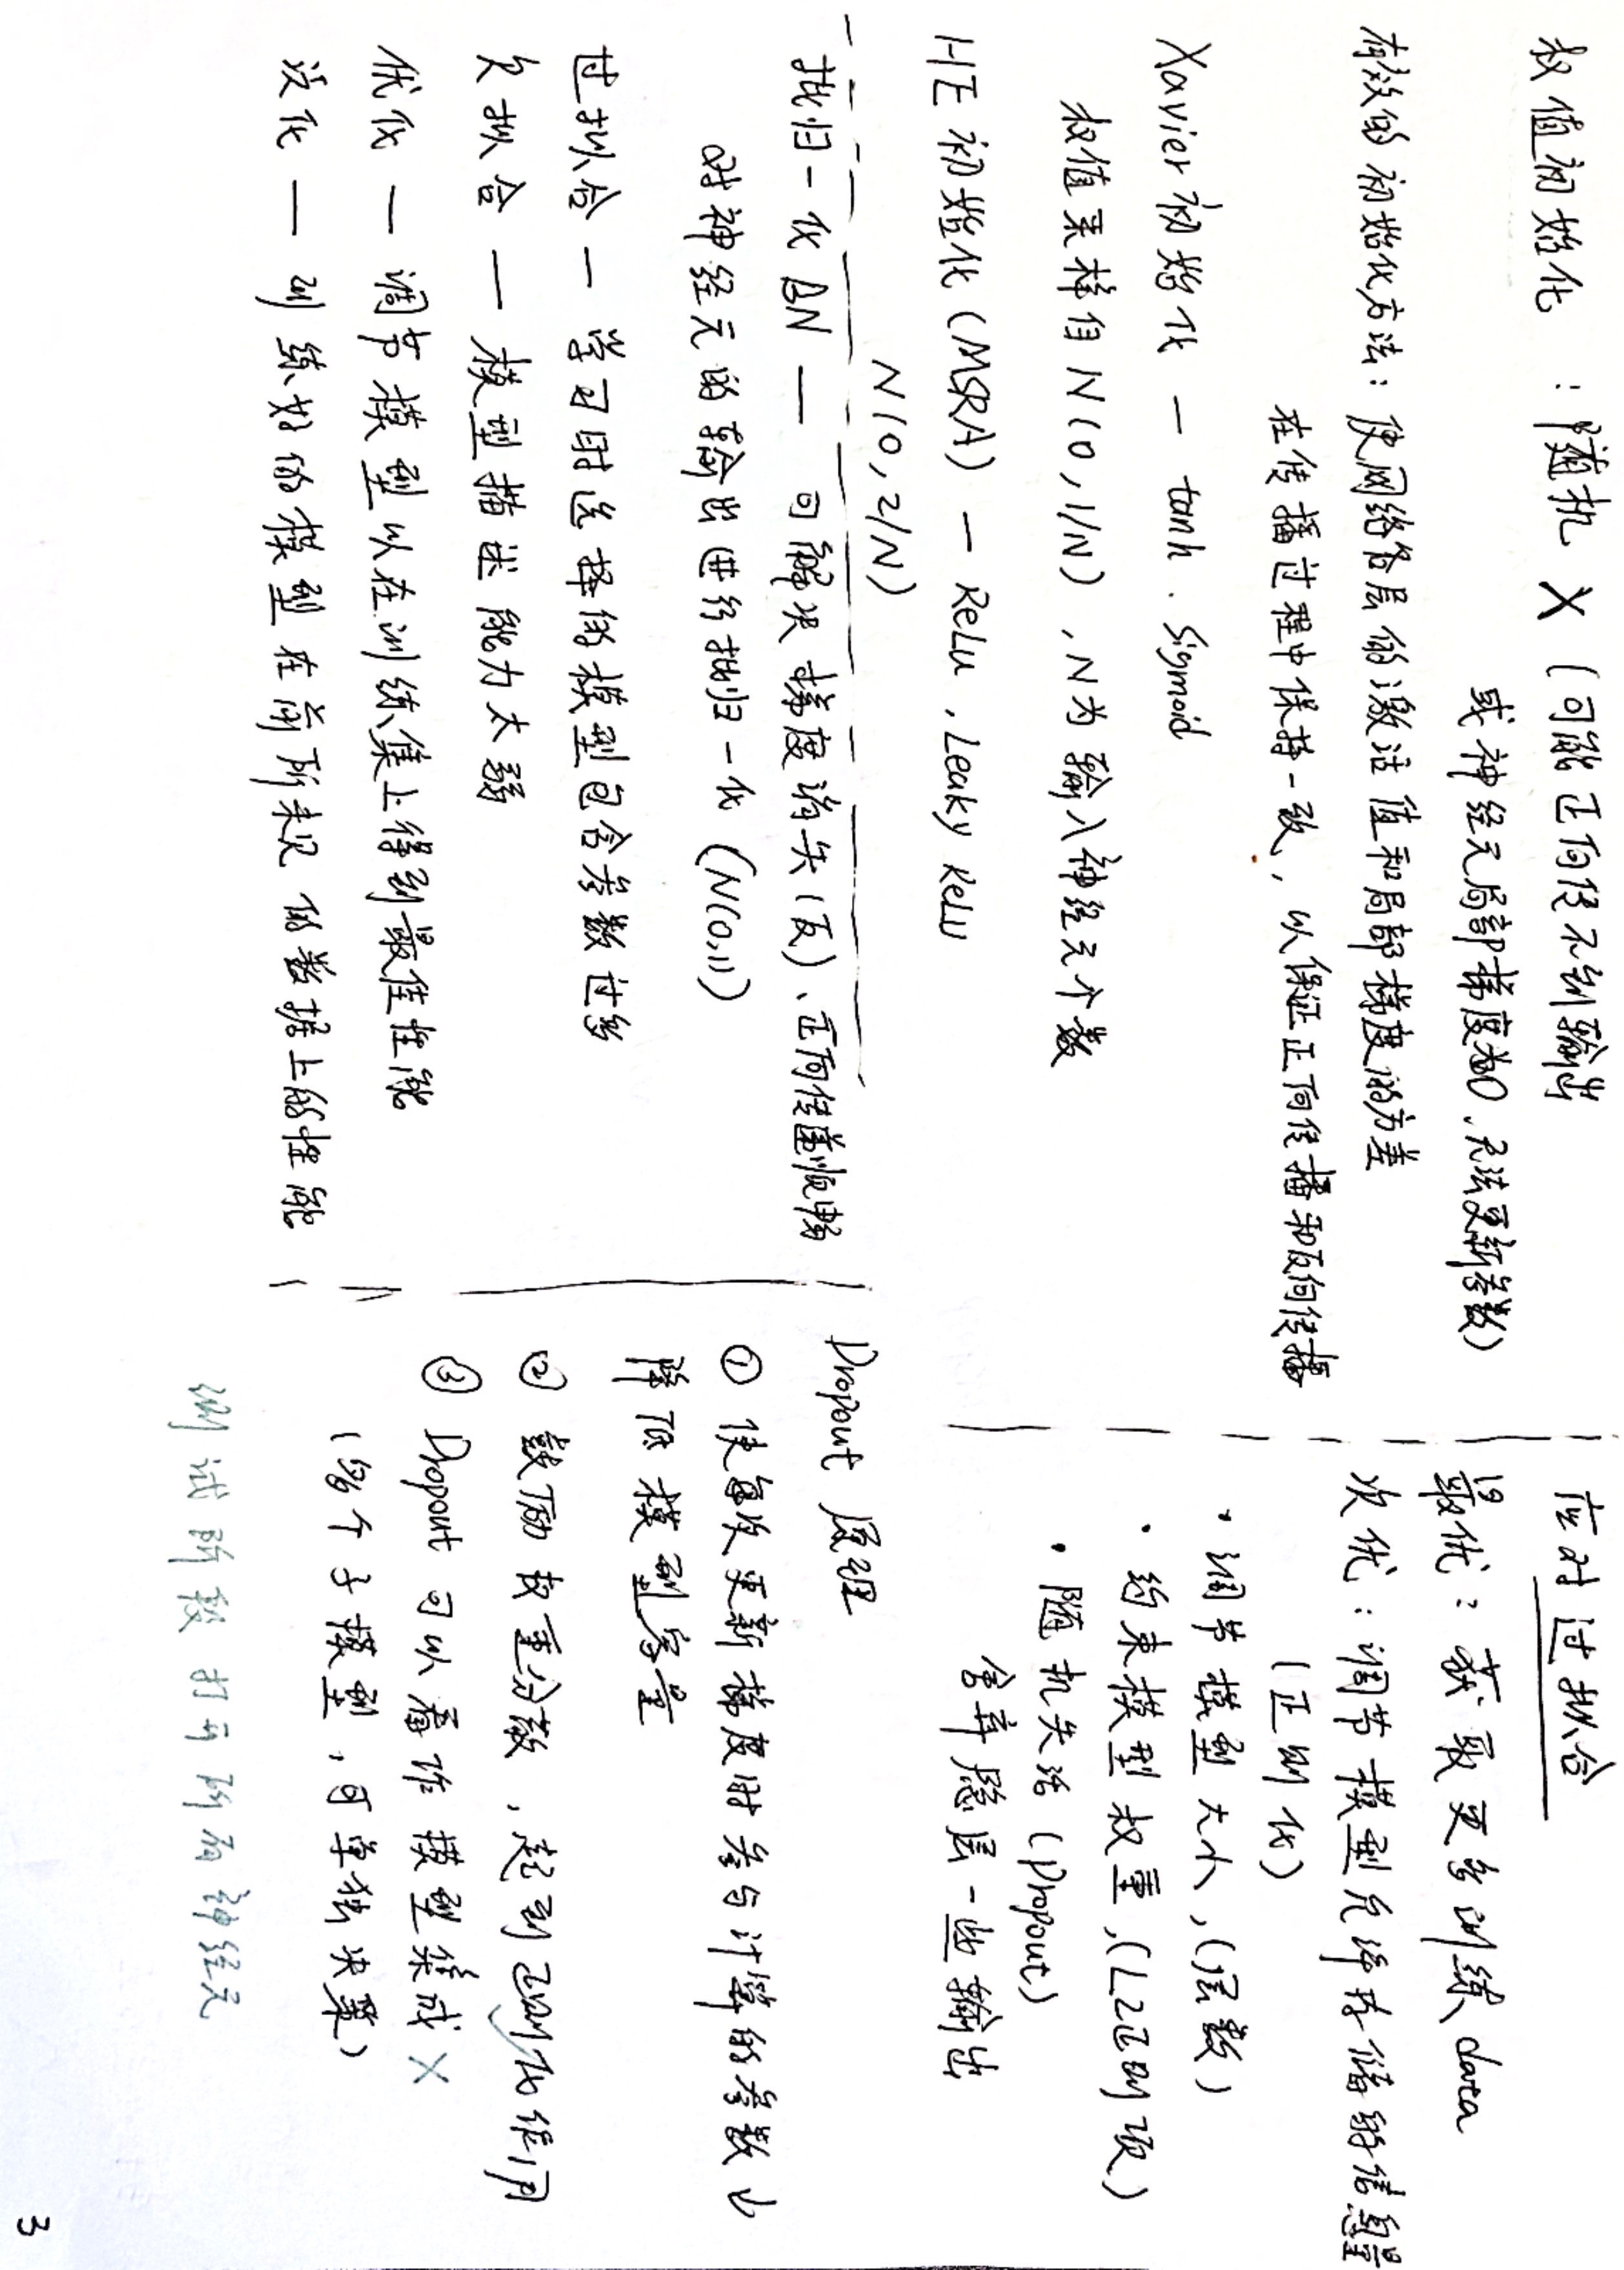 权值初始化 : 随机 X (可能正向传不到输出
或神经元局部梯度为0、无法更新参数)
有效的初始化方法: 使网络各层的激活值和局部梯度的方差
在传播过程中保持一致, 以保证正向传播和反向传播
Xavier初始化 — tanh . Sigmoid
权值采样自N(0,1/N) ,N为输入神经元个数
HE初始化(MSRA) — ReLu , Leaky ReLU
N(0,2/N)
批归一化 BN — 可解决梯度消失(反)、正向传递顺畅
对神经元的输出进行批归一化 (N(0,1))
过拟合 — 学习时选择的模型包含参数过多
欠拟合 — 模型描述能力太弱
优化 — 调节模型以在训练集上得到最佳性能
泛化 — 训练好的模型在前所未见的数据上的性能
应对过拟合
最优: 获取更多训练data
次优: 调节模型允许存储的信息量
(正则化)
· 调节模型大小,(层数)
· 约束模型权重,(L2正则项)
· 随机失活 (Dropout)
舍弃隐层一些输出
Dropout 原理
① 使每次更新梯度时参与计算的参数↓
降低模型容量
② 鼓励权重分散 , 起到正则化作用
③ Dropout 可以看作模型集成 X
(多个子模型,可单独决策)
测试阶段打开所有神经元
3